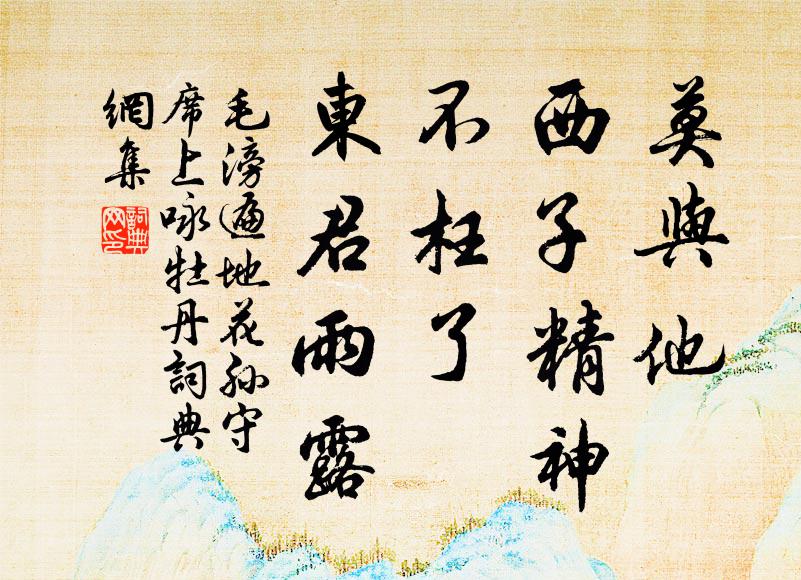 莫與他
西子精神
不枉了
東君雨露
毛滂遍地花孫守
席上咏牡丹詞典
網集
詞典网印